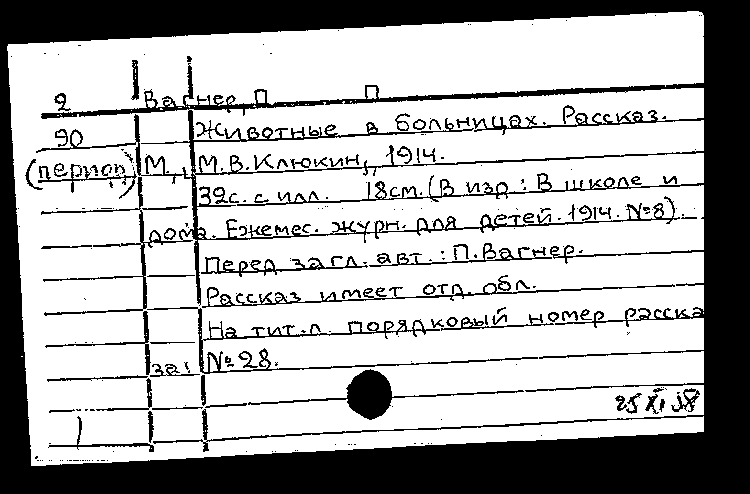 2 Вагнер, П П
90 Животные в больницах. Рассказ.
(период) М., М.В.Клюкин, 1914.
32с. с илл. 18см. (В изд: В школе и
дома. Ежемес. журн. для детей. 1914. №8).
Перед загл. авт.: П.Вагнер.
Рассказ имеет отд. обл.
На тит.л. порядковый номер расска
за: №28.
25 XI